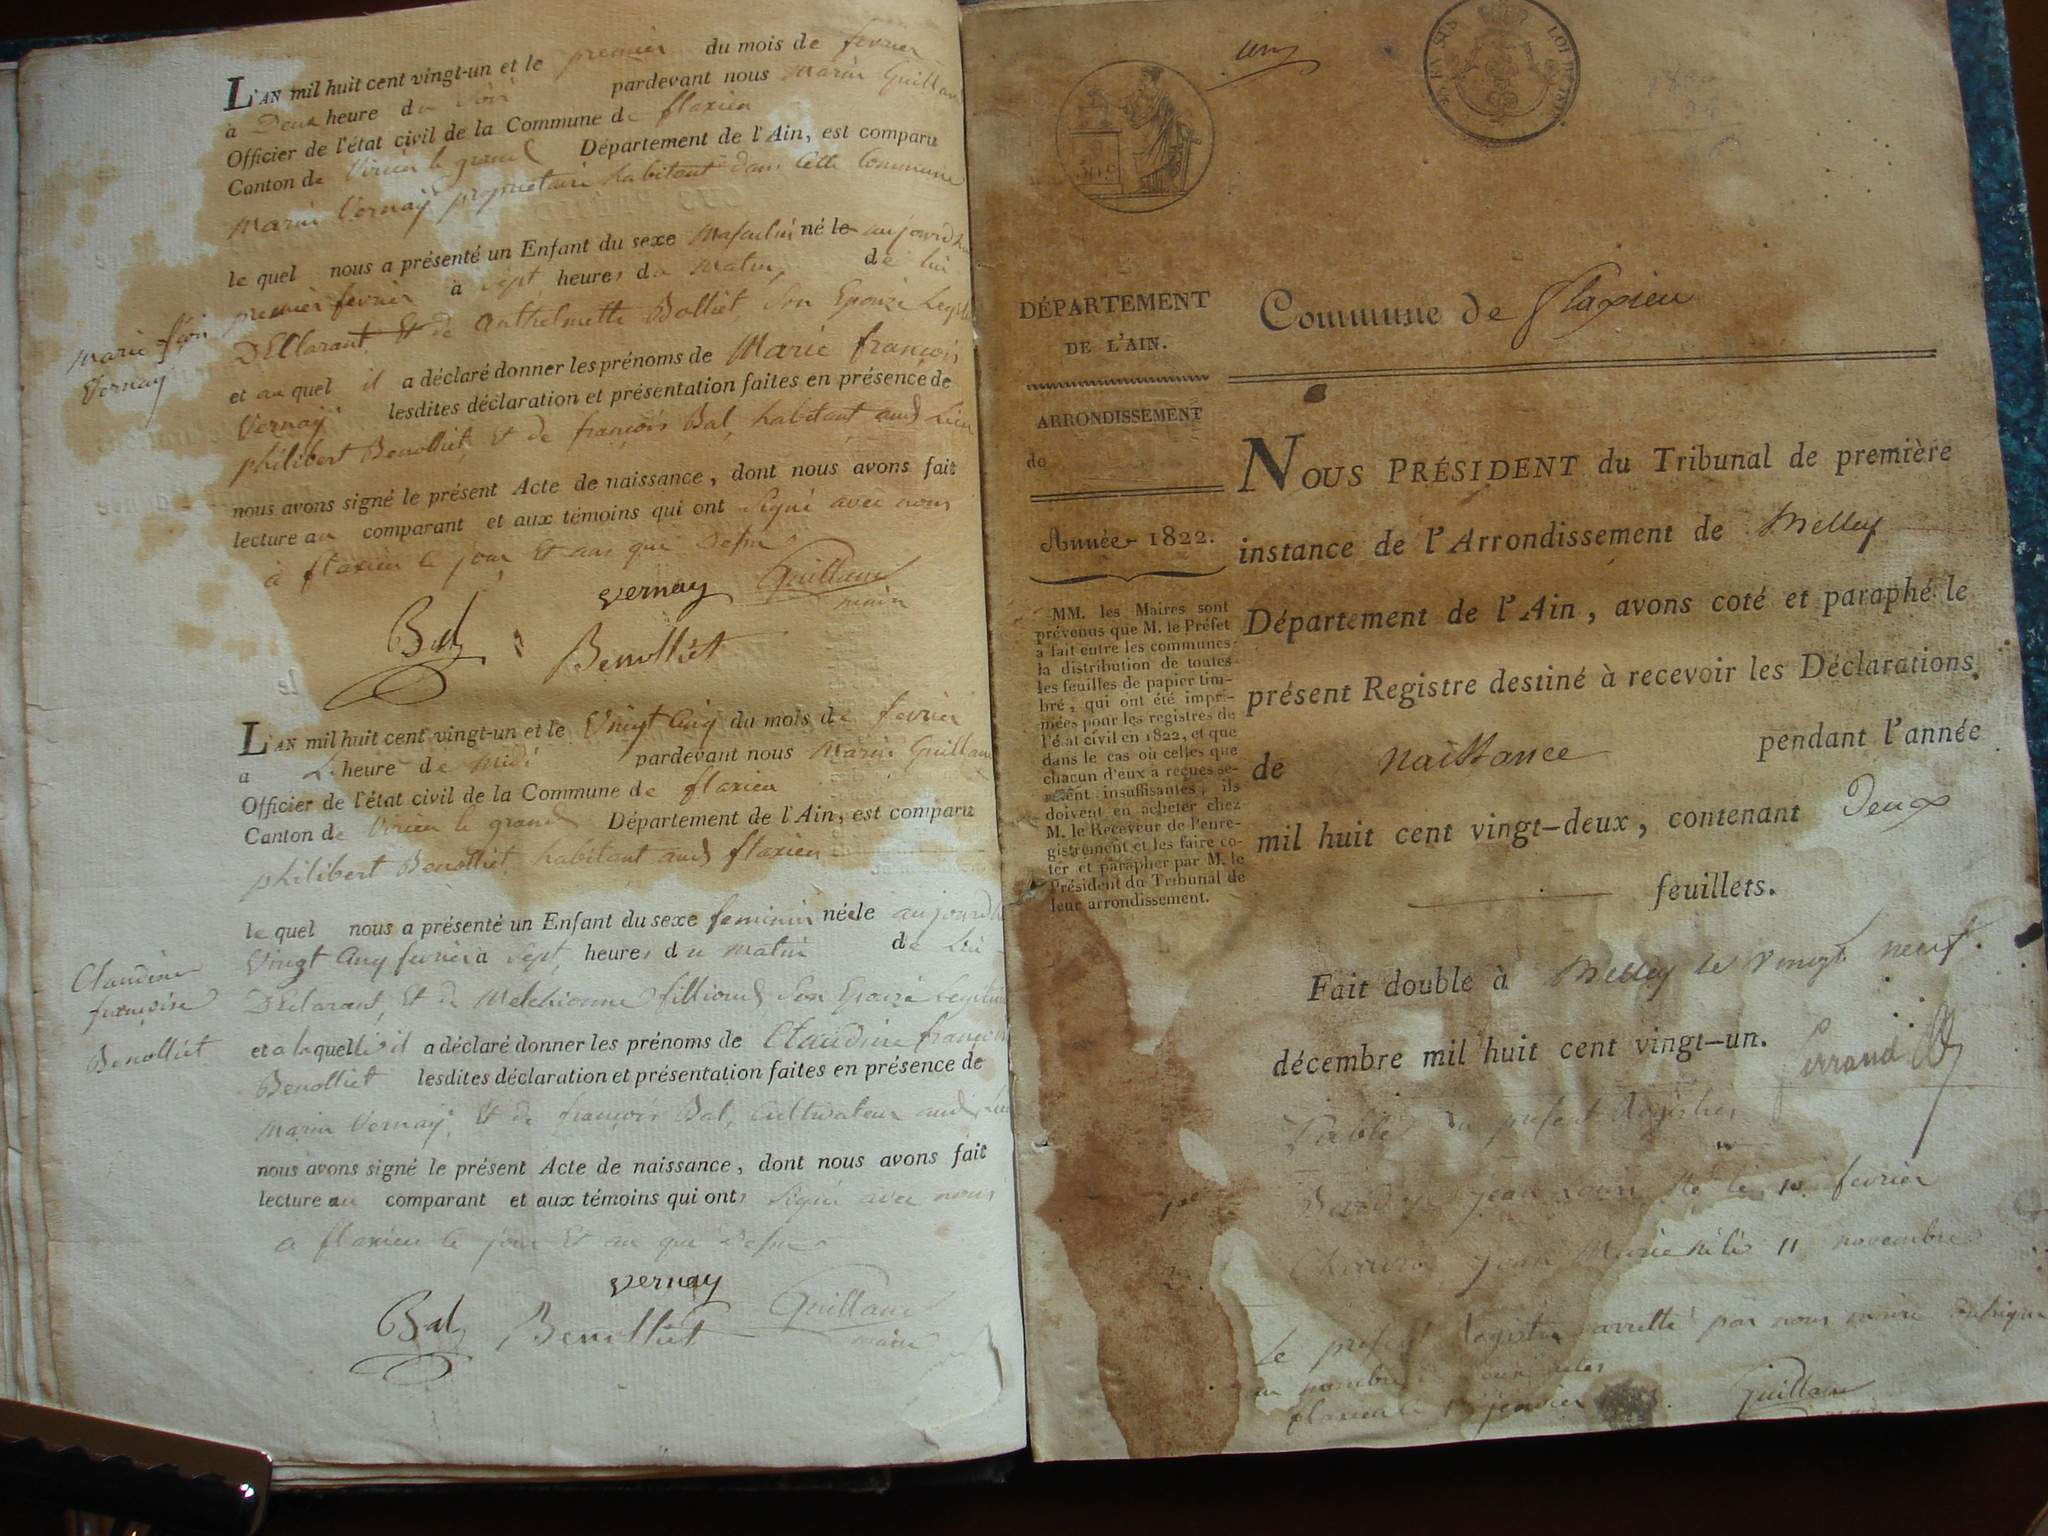 L'AN mil huit cent vingt-un et le premier du mois de fevrier
à Deux heure du Soir pardevant nous Marin Guillau
Officier de l'état civil de la Commune de flaxieu
Canton de Virieu le grand Département de l'Ain, est comparu
Marin Vernay propriétaire habitant dans Cette Commune
le quel nous a présenté un Enfant du sexe Masculin né le aujourdhu
premier fevrier à Sept heures du Matin, de lui
DEClarant Et de Anthelmette Bolliet, Son Epouze Legit
et au quel il a déclaré donner les prénoms de Marie françois
Vernay lesdites déclaration et présentation faites en présence de
philibert Benolliet, Et de françois Bal, habitant aud Lieu
nous avons signé le présent Acte de naissance, dont nous avons fait
lecture au comparant et aux témoins qui ont Signé avec nous
à flaxieu le jour Et an que Desus
Marie fçois
Vernay
vernay Guillau
maire
Bal Benolliet
L'AN mil huit cent vingt-un et le Vingt Cinq du mois de fevrier
a L heure de midi pardevant nous Marin Guillau
Officier de l'état civil de la Commune de flaxieu
Canton de Virieu le grand Département de l'Ain, est comparu
philibert Benolliet, habitant aud flaxieu
le quel nous a présenté un Enfant du sexe feminin née le aujourdh
Vingt Cinq fevrier a Sept, heures du matin de Lui
DEClarant, Et de Melchionne filliond Son Epouze Legitim
et a laquelle il a déclaré donner les prénoms de Claudine françoi
Benolliet lesdites déclaration et présentation faites en présence de
Marin Vernay, Et de françois Bal, Cultivateur aud Lieu
nous avons signé le présent Acte de naissance, dont nous avons fait
lecture au comparant et aux témoins qui ont Signé avec nous
a flaxieu le jour Et an que Desus
Claudine
françoise
Benolliet
vernay
Bal Benolliet Guillau
maire
un
DÉPARTEMENT
DE L'AIN.
ARRONDISSEMENT
de
Année 1822.
MM. les Maires sont
prévenus que M. le Préfet
a fait entre les communes
la distribution de toutes
les feuilles de papier tim-
bré, qui ont été impri-
mées pour les registres de
l'état civil en 1822, et que
dans le cas où celles que
chacun d'eux a reçues se-
roient insuffisantes, ils
doivent en acheter chez
M. le Receveur de l'enre-
gistrement et les faire co-
ter et parapher par M. le
Président du Tribunal de
leur arrondissement.
Commune de flaxieu
NOUS PRÉSIDENT du Tribunal de première
instance de l'Arrondissement de Belley
Département de l'Ain, avons coté et paraphé le
présent Registre destiné à recevoir les Déclarations
de naissance pendant l'année
mil huit cent vingt-deux, contenant Deux
feuillets.
Fait double à Belley le vingt neuf.
décembre mil huit cent vingt-un.
Table du present Registre
jean Né le 10 fevrier
jean Marie né le 11 novembre
Le present Registre arretté par nous maire
au nombre
flaxieu le 1 janvier
Guillau